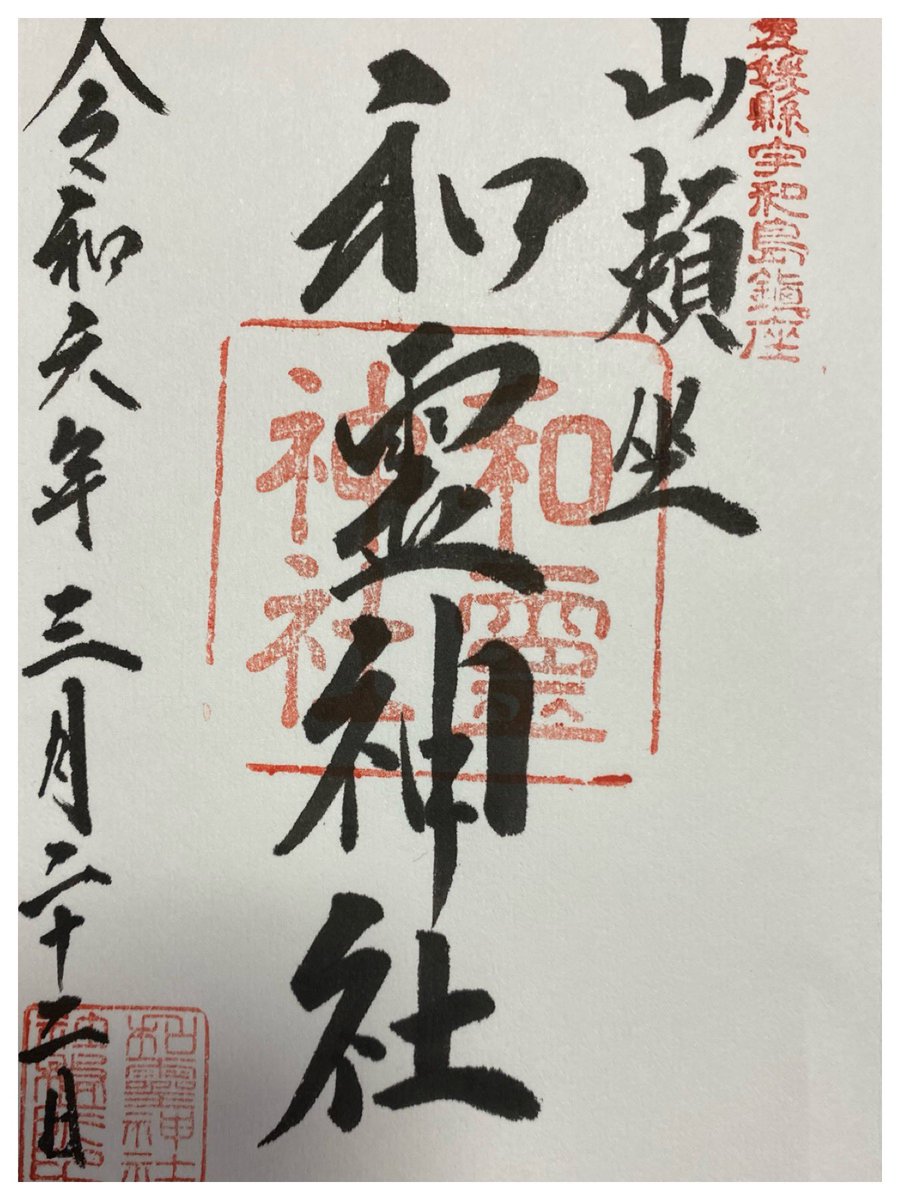 愛媛縣宇和島鎮座
山頼坐
和霊神社
和靈
神社
令和六年三月二十二日
和靈神社
社務所印